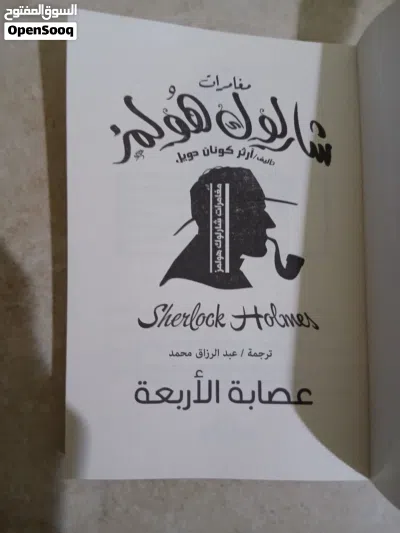 السوق المفتوح
OpenSooq
مغامرات
شارلوك هولمز
تأليف/آرثر كونان دويل
مغامرات شارلوك هولمز
Sherlock Holmes
ترجمة / عبد الرزاق محمد
عصابة الأربعة